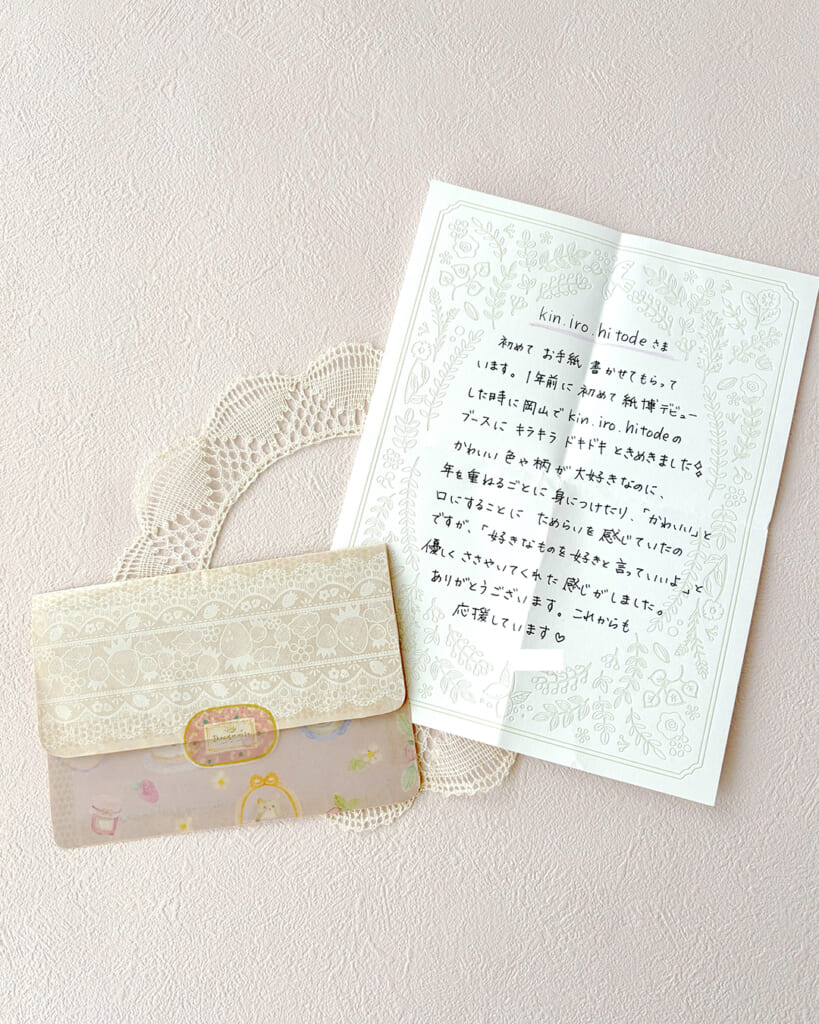 kin.iro.hitodeさま
初めて お手紙 書かせてもらって
います。1年前に 初めて 紙博デビュー
した時に 岡山で kin.iro.hitodeの
ブースに キラキラ ドキドキ ときめきました
かわいい 色や柄が 大好きなのに、
年を重ねるごとに 身につけたり、「かわいい」と
口にすることに ためらいを 感じていたの
ですが、「好きなものを 好きと 言っていいよ」と
優しく ささやいてくれた 感じがしました。
ありがとうございます。これからも
応援しています♡